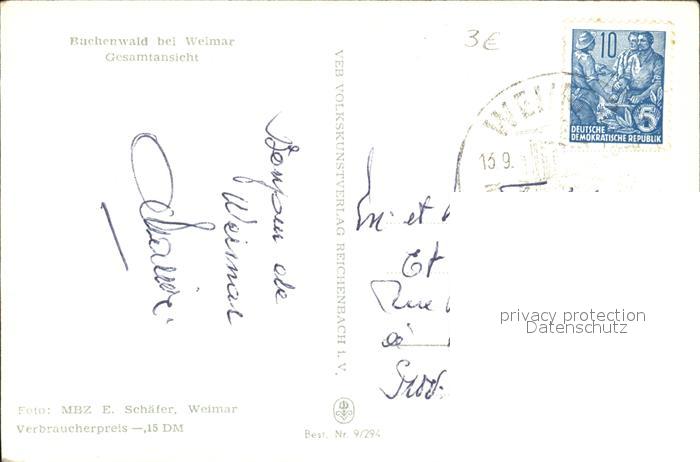 3€
Buchenwald bei Weimar
Gesamtansicht
10
5
DEUTSCHE
DEMOKRATISCHE REPUBLIK
WEIM
13.9.
VEB VOLKSKUNSTVERLAG REICHENBACH i. V.
Bonjour de
Weimar
et
Et
Rue
à
privacy protection
Datenschutz
Foto: MBZ E. Schäfer, Weimar
Verbraucherpreis —,15 DM
Best. Nr. 9/294